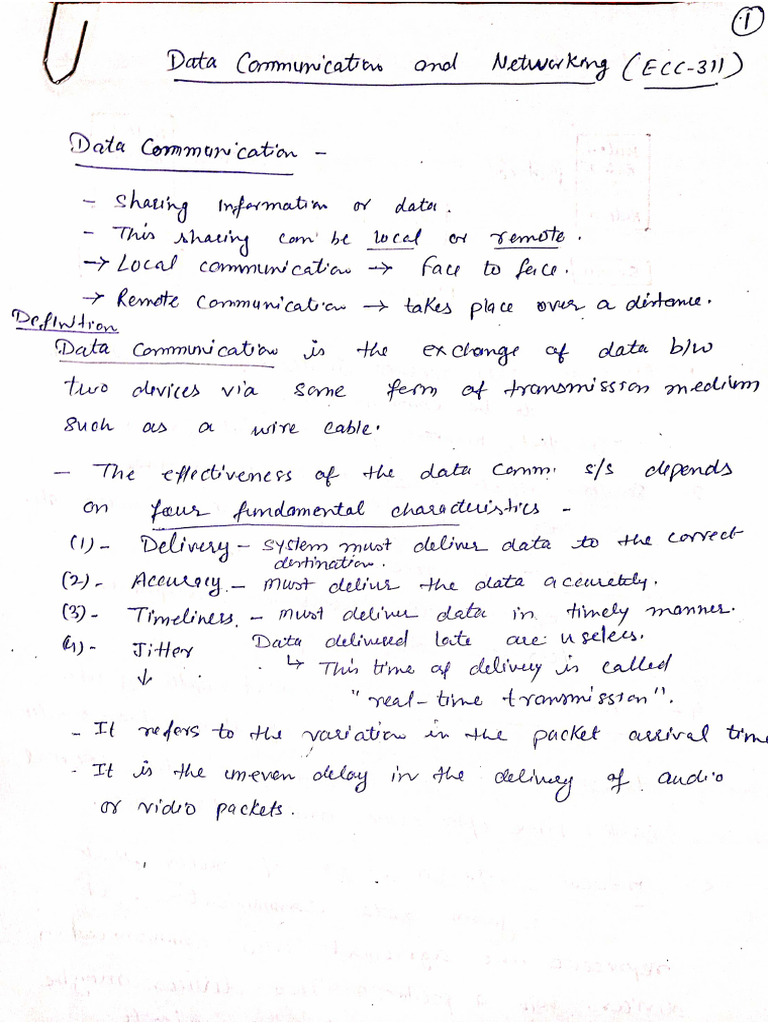 1
Data Communication and Networking (ECC-311)
Data Communication -
- Sharing Information or data.
- This sharing can be local or remote.
→ Local communication → face to face.
→ Remote communication → takes place over a distance.
Definition
Data Communication is the exchange of data b/w
two devices via some form of transmission medium
such as a wire cable.
- The effectiveness of the data comm. s/s depends
on four fundamental characteristics -
(1)- Delivery - system must deliver data to the correct
destination.
(2)- Accuracy. - must deliver the data accurately.
(3)- Timeliness. - must deliver data in timely manner.
Data delivered late are useless.
(4)- Jitter
↳ This time of delivery is called
"real-time transmission".
- It refers to the variation in the packet arrival time
- It is the uneven delay in the delivery of audio
or vidio packets.